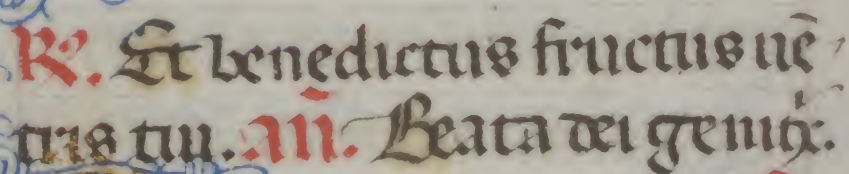 R̃. Et benedictus fructus uē
tris tui. añ. Beata dei genitͥx.